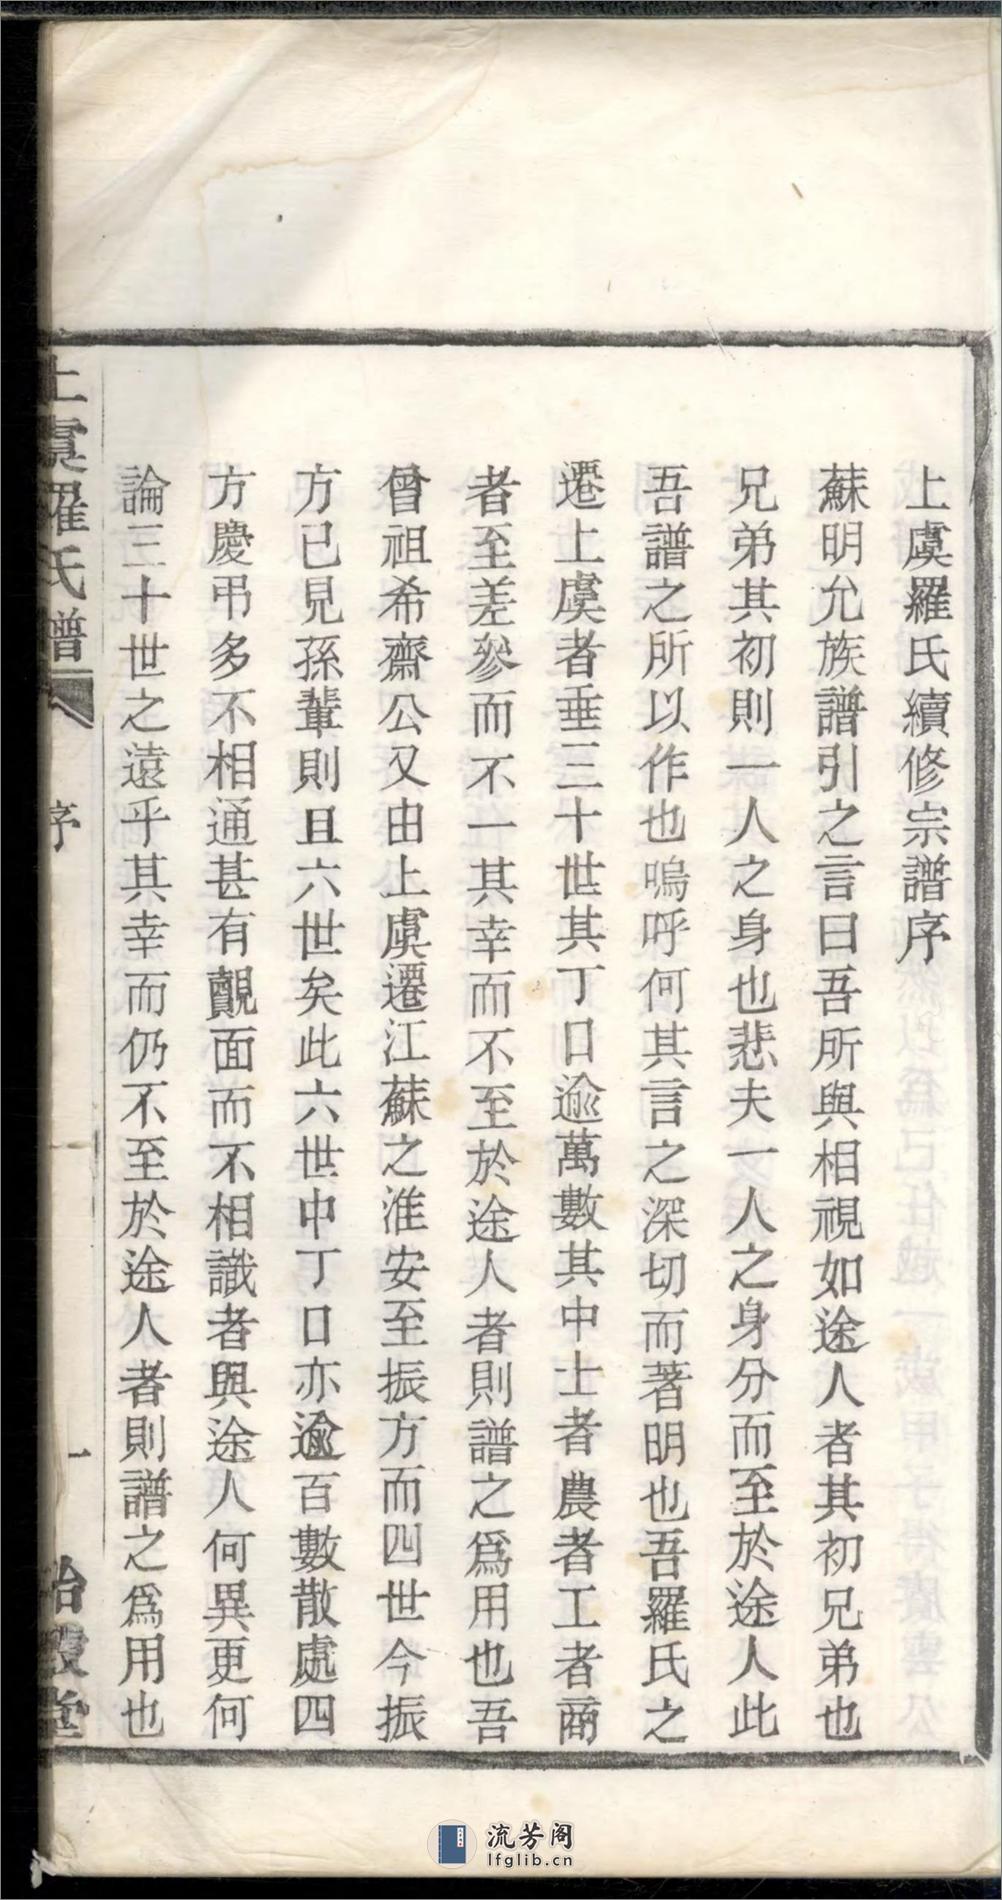 上虞羅氏續修宗譜序
蘇明允族譜引之言曰吾所與相視如途人者其初兄弟也
兄弟其初則一人之身也悲夫一人之身分而至於途人此
吾譜之所以作也嗚呼何其言之深切而著明也吾羅氏之
遷上虞者垂三十世其丁口逾萬數其中士者農者工者商
者至差參而不一其幸而不至於途人者則譜之爲用也吾
曾祖希齋公又由上虞遷江蘇之淮安至振方而四世今振
方已見孫輩則且六世矣此六世中丁口亦逾百數散處四
方慶弔多不相通甚有覿面而不相識者與途人何異更何
論三十世之遠乎其幸而仍不至於途人者則譜之爲用也
上虞羅氏譜
序
一
流芳阁
lfglib.cn